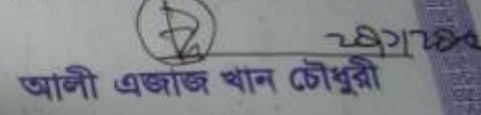 আলী এজাজ খান চৌধুরী